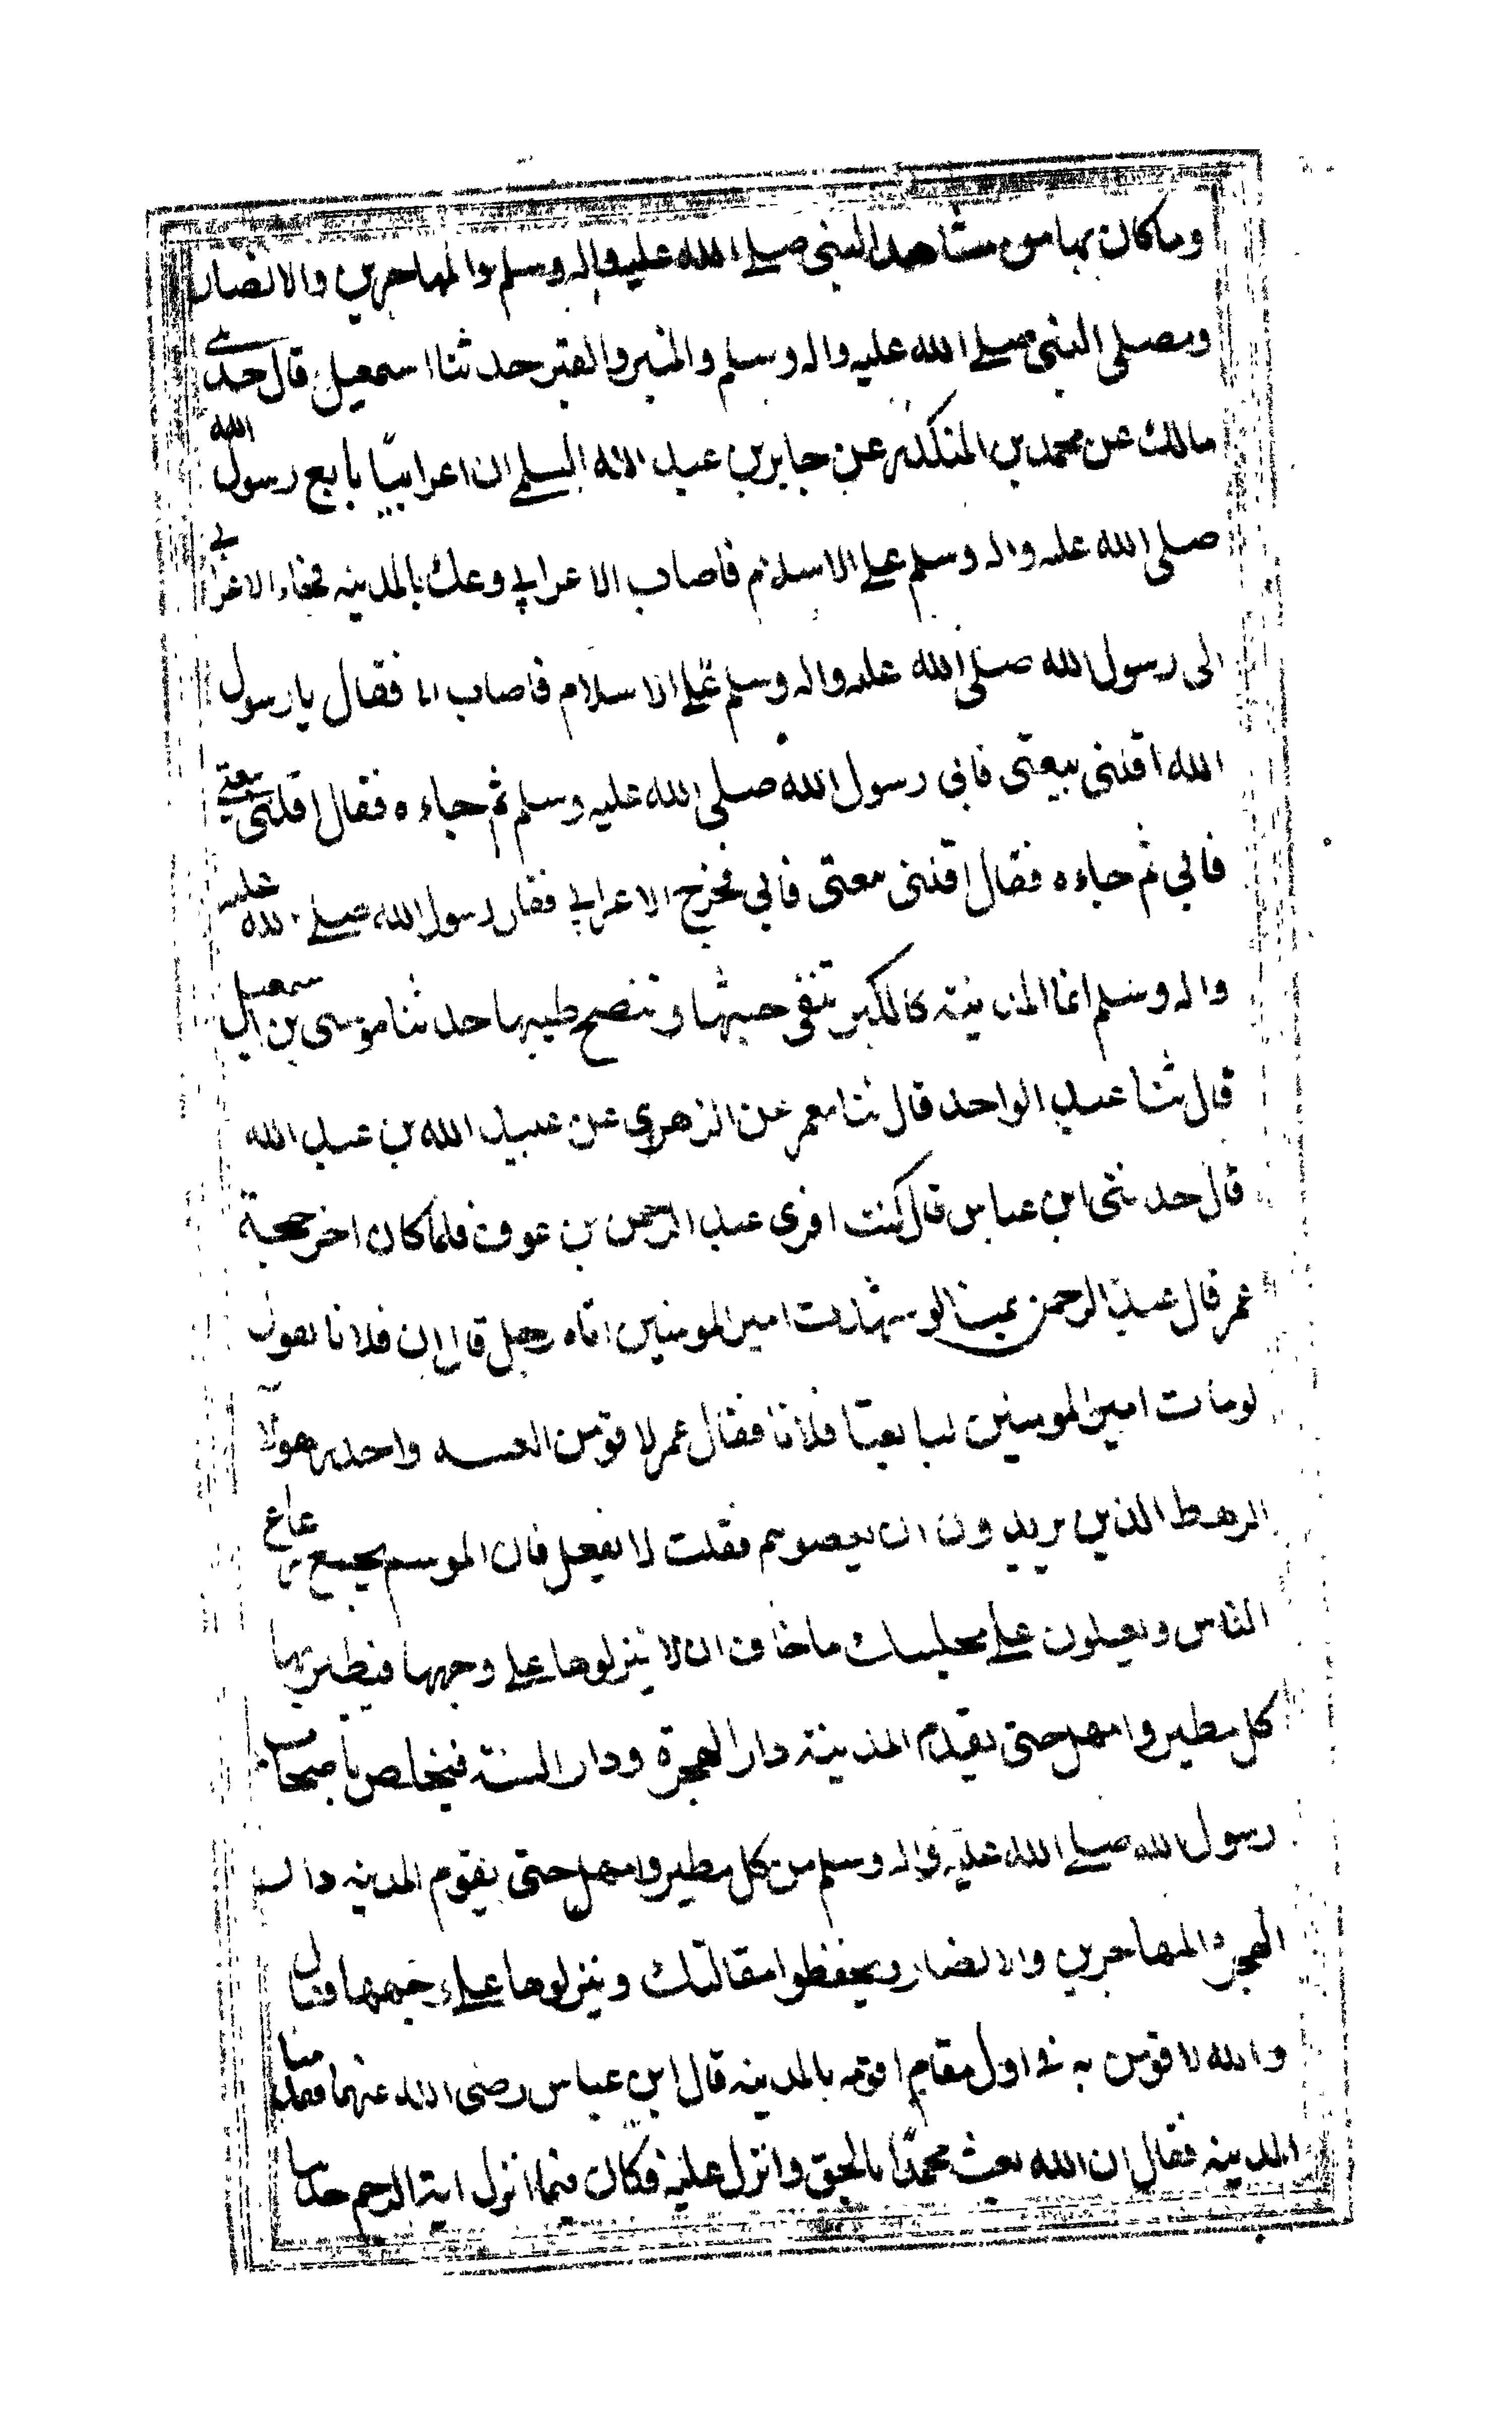 وما كان بها من مشاهد النبي صلے الله عليه واله وسلم والمهاجرين والانصار
ومصلى النبي صلے الله عليه واله وسلم والمنبر والقبر حدثنا اسمعيل قال حدثنے
مالك عن محمد بن المنكدر عن جابر بن عبد الله السلمے ان اعرابيّا بايع رسول الله
صلى الله عليه واله وسلم علے الاسلام فاصاب الاعرابي وعك بالمدينه فجاء الاعرابے
الى رسول الله صلى الله عليه واله وسلم علے الاسلام فاصاب الا فقال يا رسول
الله اقلنى بيعتى فابى رسول الله صلى الله عليه وسلم ثم جاءه فقال اقلنى بيعتے
فابي ثم جاءه فقال اقلنى بيعتى فابي فخرج الاعرابي فقال رسول الله صلے الله عليه
واله وسلم انما المدينة كالكير تنفى خبثها وتنصع طيبها حدثنا موسى بن اسمعيل
قال ثنا عبد الواحد قال ثنا معمر عن الزهري عن عبيد الله بن عبد الله
قال حدثنى ابن عباس قال كنت اقرى عبد الرحمن بن عوف فلما كان اخر حجة
عمر قال عبد الرحمن بمنا لو شهدت امير المومنين اتاه رجل قال ان فلانا يقول
لو مات امير المومنين لبايعنا فلانا فقال عمر لاقومن العسه واحدر هولاء
الرهط الذين يريدون ان يعصوهم فقلت لا تفعل فان الموسم يجمع رعاع
الناس ويغلبون علے مجلسك فاخاف ان لا ينزلوها علے وجهها فيطير بها
كل مطير وامهل حتى تقدم المدينة دار الهجرة ودار السنة فتخلص باصحاب
رسول الله صلے الله عليه واله وسلم من كل مطير وامهل حتى يقوم المدينه دار
الهجرة المهاجرين والانصار ويحفظوا مقالتك وينزلوها علے وجهها فقال
والله لاقومن به في اول مقام اقومه بالمدينه قال ابن عباس رضى الله عنهما فقدمنا
المدينه فقال ان الله بعث محمدّا بالحق وانزل عليه فكان فيما انزل اية الرجم حدثنا